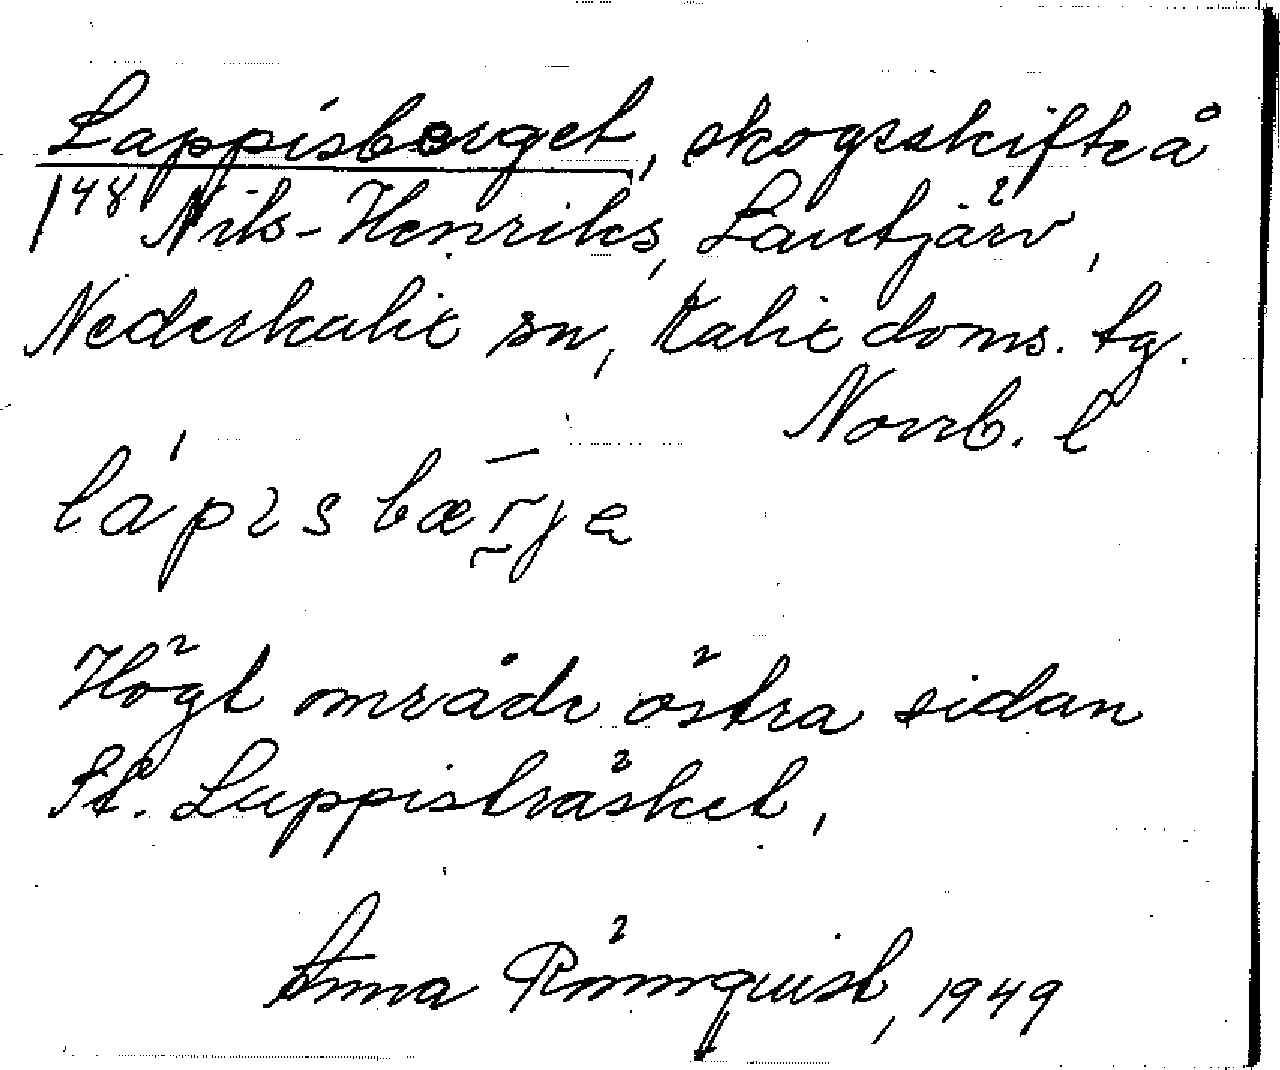 Lappisberget, skogsskifte å
1⁴⁸ Nils-Henriks, Lantjärv,
Nederkalix sn, Kalix doms. tg.
Norrb. l
Högt område östra sidan
St. Lappisträsket,
Anna Rönnquist, 1949